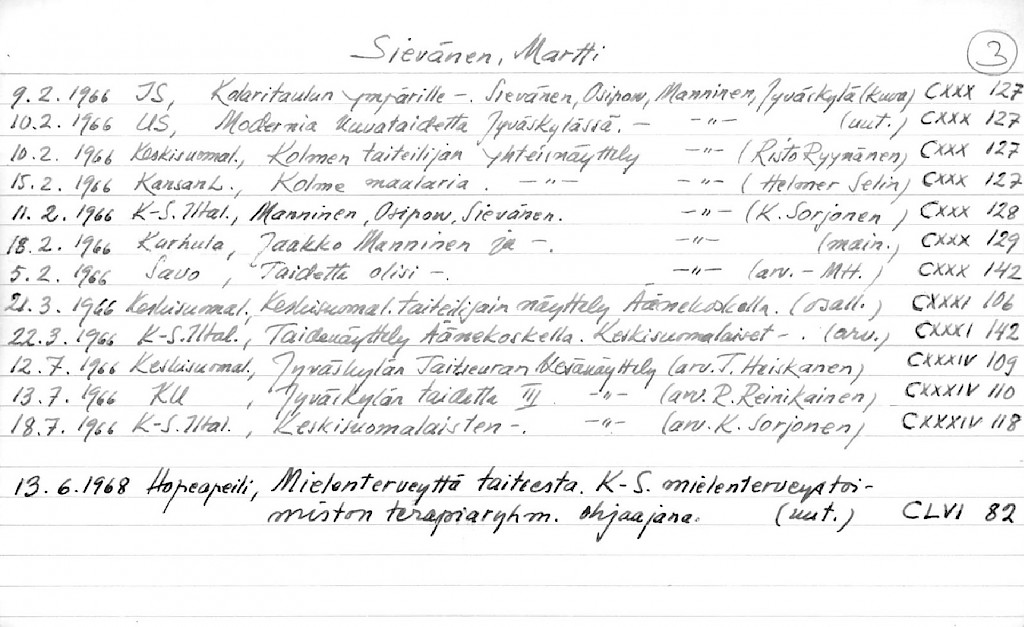 Sievänen, Martti 3
9.2.1966 IS, Kolaritaulun ympärille -. Sievänen, Osipow, Manninen, Jyväskylä (kuva) CXXX 127
10.2.1966 US, Modernia kuvataidetta Jyväskylässä. - -"- (uut.) CXXX 127
10.2.1966 Keskisuomal., Kolmen taiteilijan yhteisnäyttely -"- (Risto Ryynänen) CXXX 127
15.2.1966 KansanL., Kolme maalaria. -"- -"- (Helmer Selin) CXXX 127
11.2.1966 K-S.Iltal., Manninen, Osipow, Sievänen. -"- (K. Sorjonen) CXXX 128
18.2.1966 Karhula, Jaakko Manninen ja -. -"- (main.) CXXX 129
5.2.1966 Savo, Taidetta olisi -. -"- (arv. - MH.) CXXX 142
21.3.1966 Keskisuomal., Keskisuomal. taiteilijain näyttely Äänekoskella. (osall.) CXXXI 106
22.3.1966 K-S.Iltal., Taidenäyttely Äänekoskella. Keskisuomalaiset -. (arv.) CXXXI 142
12.7.1966 Keskisuomal., Jyväskylän Taiteuran kesänäyttely (arv. T. Heiskanen) CXXXIV 109
13.7.1966 KU, Jyväskylän taidetta III -"- (arv. R. Reinikainen) CXXXIV 110
18.7.1966 K-S.Iltal., Keskisuomalaisten -. -"- (arv. K. Sorjonen) CXXXIV 118
13.6.1968 Hopeapeili, Mielenterveyttä taiteesta. K-S. mielenterveystoi-
miston terapiaryhm. ohjaajana. (uut.) CLVI 82